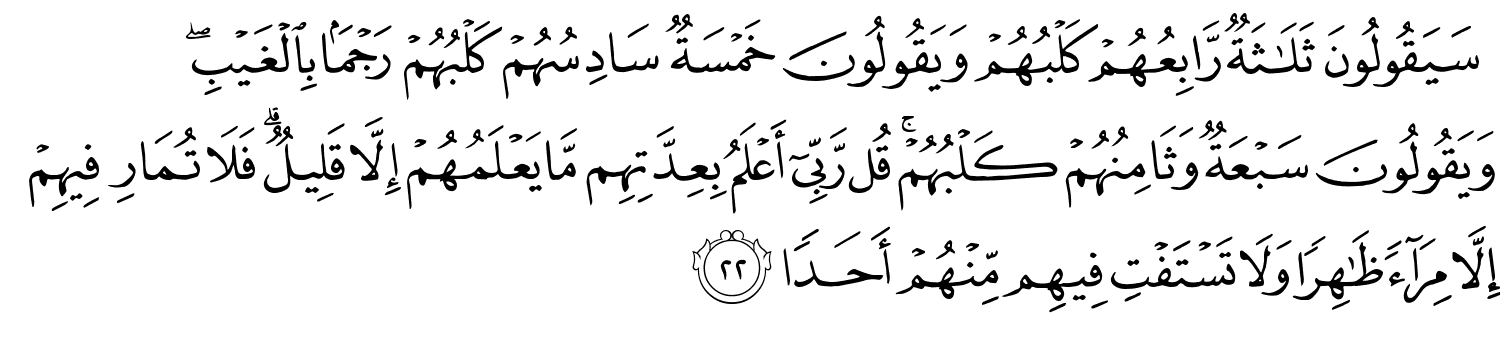 سَيَقُولُونَ ثَلَٰثَةٌ رَّابِعُهُمْ كَلْبُهُمْ وَيَقُولُونَ خَمْسَةٌ سَادِسُهُمْ كَلْبُهُمْ رَجْمًۢا بِٱلْغَيْبِ ۖ
وَيَقُولُونَ سَبْعَةٌ وَثَامِنُهُمْ كَلْبُهُمْ ۚ قُل رَّبِّىٓ أَعْلَمُ بِعِدَّتِهِم مَّا يَعْلَمُهُمْ إِلَّا قَلِيلٌ ۗ فَلَا تُمَارِ فِيهِمْ
إِلَّا مِرَآءً ظَٰهِرًا وَلَا تَسْتَفْتِ فِيهِم مِّنْهُمْ أَحَدًا ٢٢